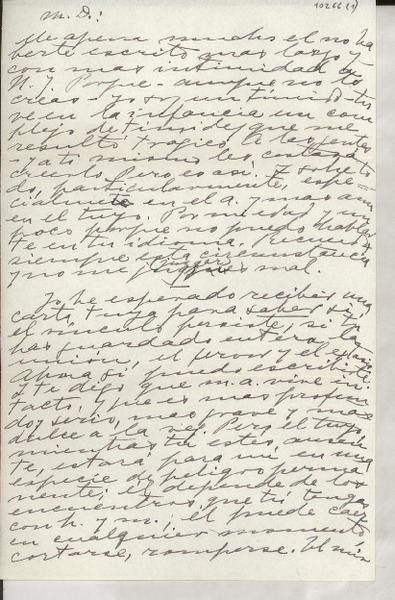 10266(1)
M. D.:
Me apena mucho el no ha
berte escrito mas largo y
con mas intimidad a
N. Y. Porque - aunque no lo
creas - yo soy un tímido - tu
ve en la infancia un com
plejo de timidez que me
resultó trágico. A las gentes
- y a ti misma les costará
creerlo. Pero es así. Y sobre to
do, particularmente, espe-
cialmente en el a. y mas aun
en el tuyo. Por mi edad y un
poco porque no puedo hablar
te en tu idioma. Recuerda
siempre esta circunstancia
y no me juzgues mal.
Yo he esperado recibir una
carta tuya para saber si
el vínculo persiste, si tú
has guardado entera la
unión, el fervor y el extasis
Ahora sí puedo escribirte
Y te digo que m. a. vive in
tacto, y que es mas profun
do y serio, mas grave y mas
dulce a la vez. Pero el tuyo
mientras tú estés ausen
te, estará para mí en una
especie de peligro perma
nente: él depende de los
encuentros que tú tengas
con h. y m.; él puede caer
en cualquier momento
cortarse, romperse. El mío